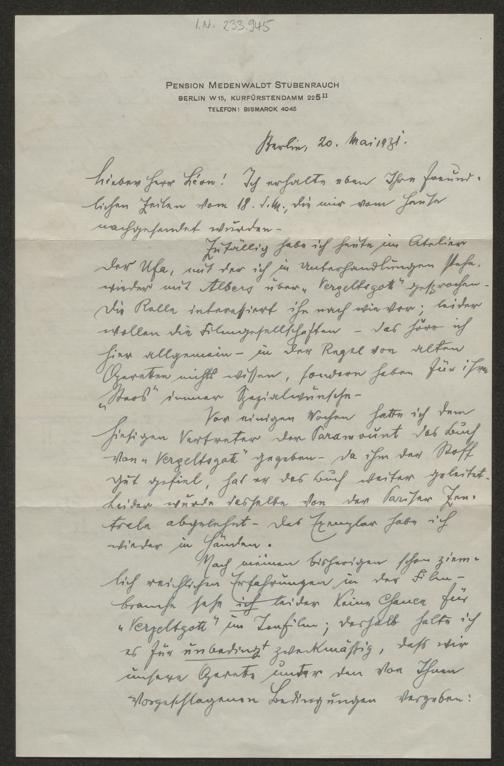 I.N. 233.945
PENSION MEDENWALDT STUBENRAUCH
BERLIN W15, KURFÜRSTENDAMM 225 II
TELEFON: BISMARCK 4045
Berlin, 20. Mai 1931.
Lieber Herr Léon! Ich erhalte eben Ihre freund-
lichen Zeilen vom 18. d. M., die mir vom Hause
nachgesendet wurden -
Zufällig habe ich heute im Atelier
der Ufa, mit der ich in Unterhandlungen stehe,
wieder mit Albers über „Vergeltsgott" gesprochen -
Die Rolle interessiert ihn nach wie vor; leider
wollen die Filmgesellschaften - das höre ich
hier allgemein - in der Regel von alten
Operetten nichts wissen, sondern haben für ihre
„Stars" immer Spezialwünsche -
Vor einigen Wochen hatte ich dem
hiesigen Vertreter der Paramount das Buch
von „Vergeltsgott" gegeben - da ihm der Stoff
gut gefiel, hat er das Buch weiter geleitet.
Leider wurde dasselbe von der Pariser Zen-
trale abgelehnt - das Exemplar habe ich
wieder in Händen.
Nach meinen bisherigen schon ziem-
lich reichlichen Erfahrungen in der Film-
branche sehe ich leider keine Chance für
„Vergeltsgott" im Tonfilm; deshalb halte ich
es für unbedingt zweckmäßig, daß wir
unsere Operette unter den von Ihnen
vorgeschlagenen Bedingungen vergeben: